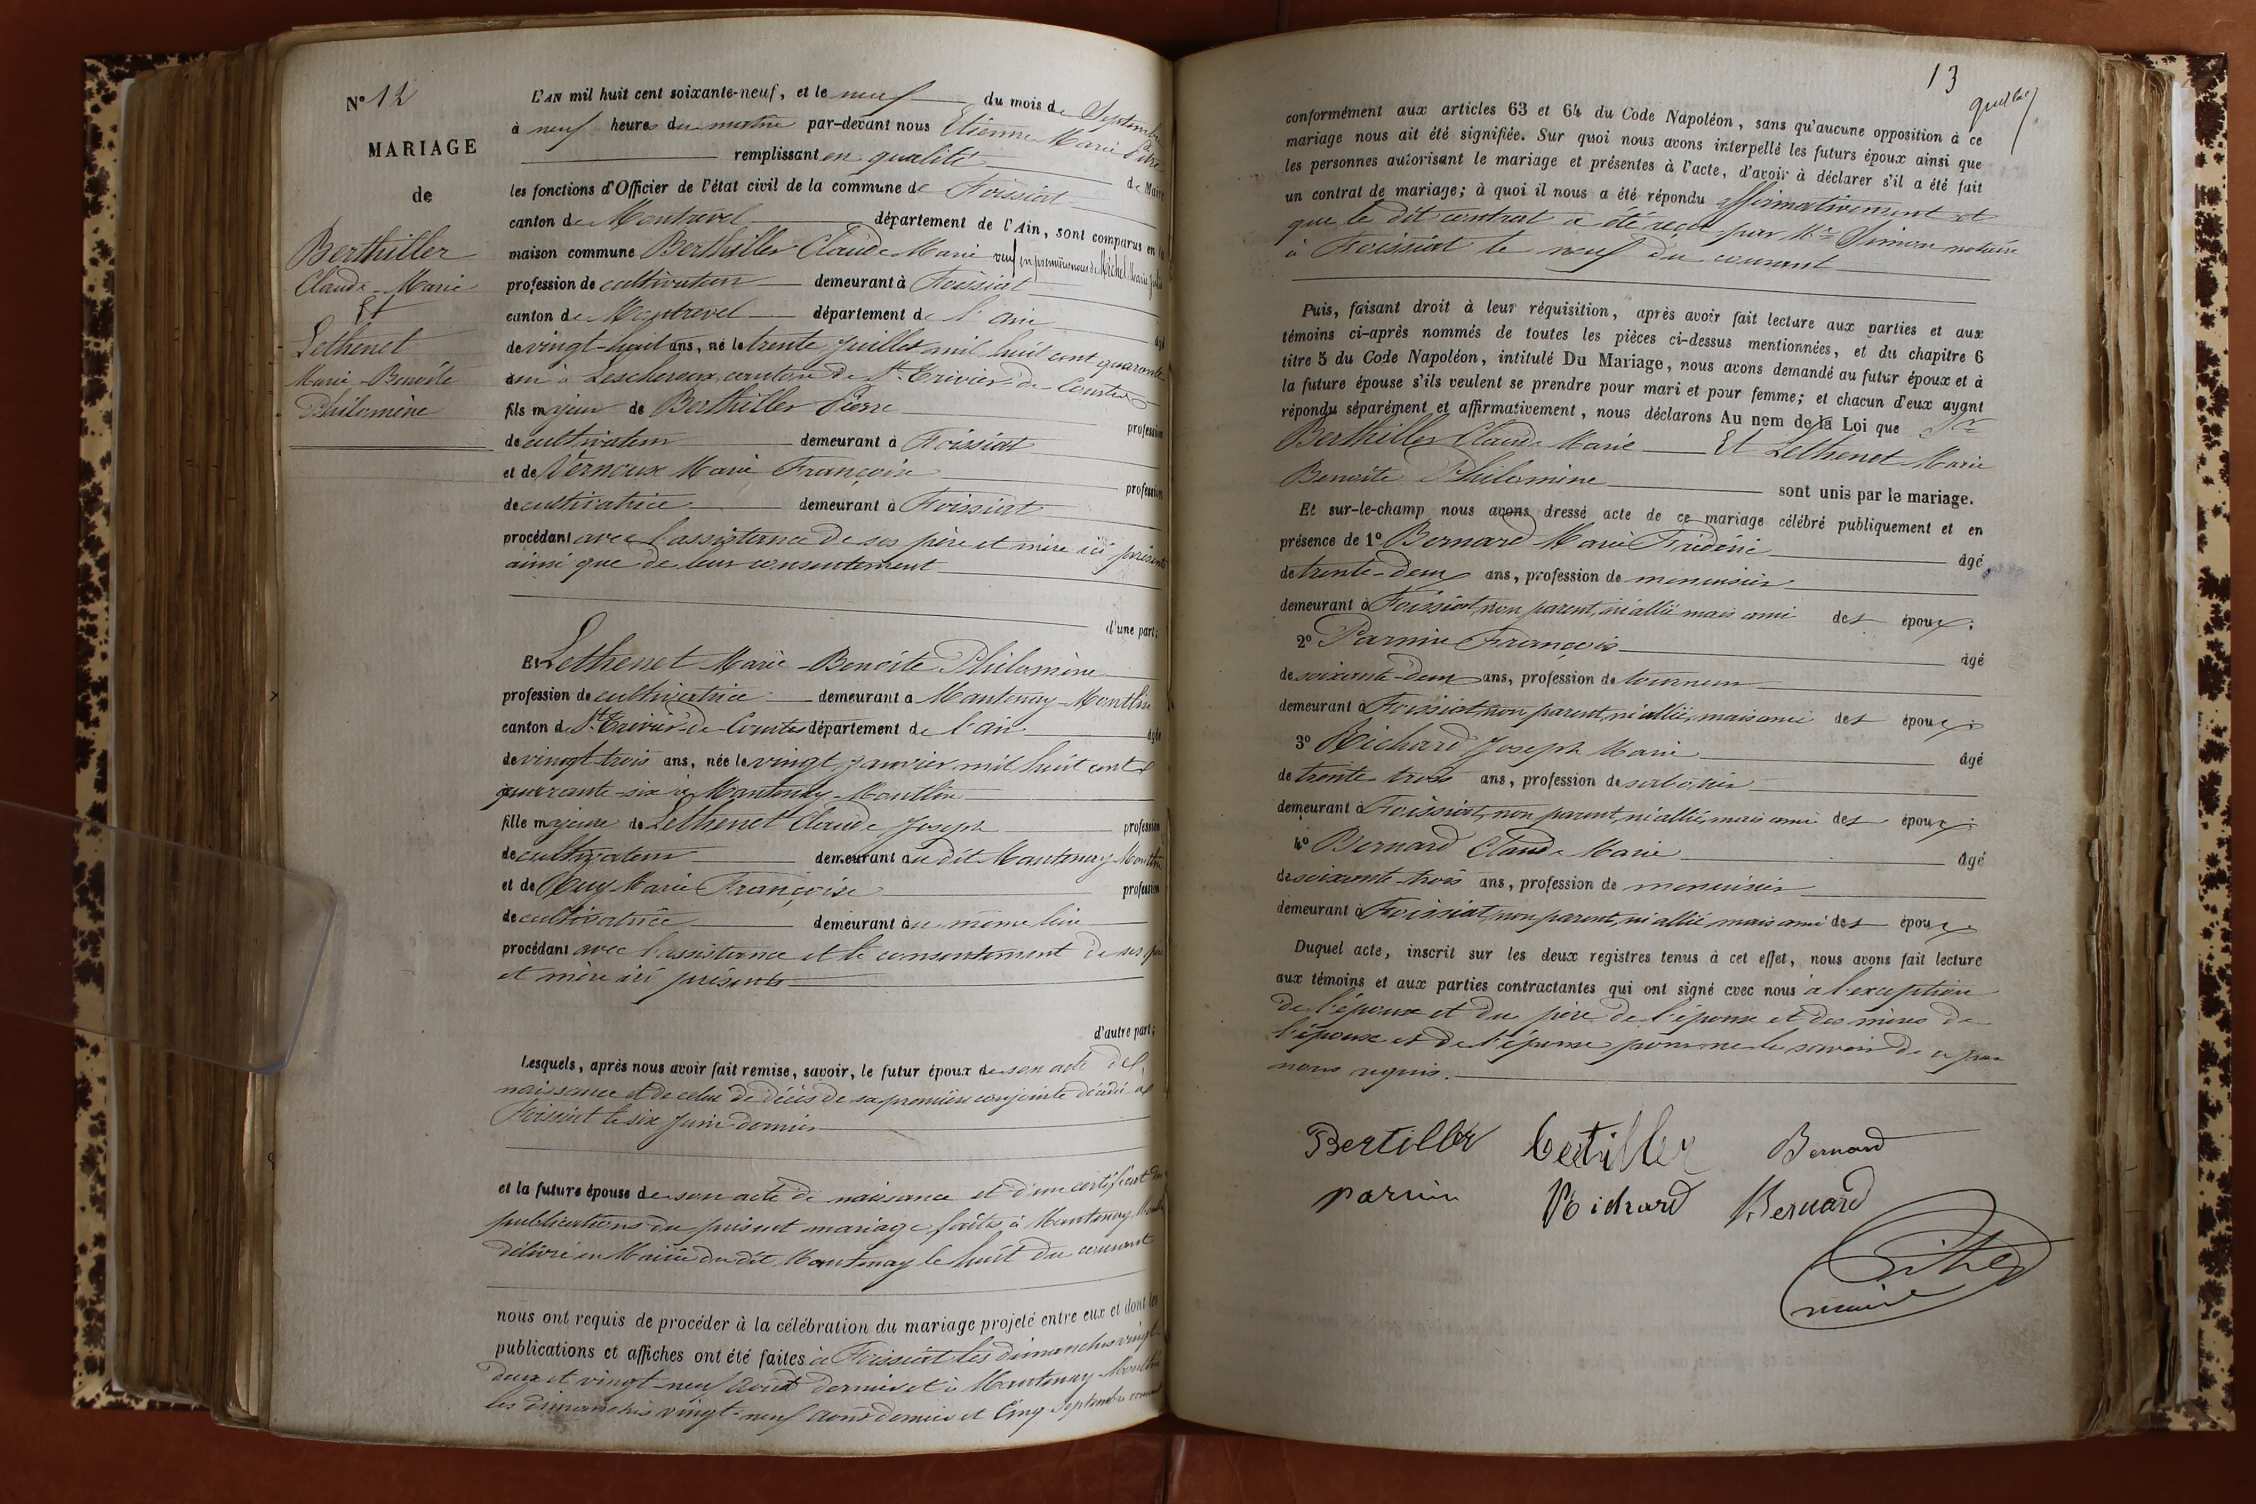 N° 12
MARIAGE
de
Berthiller
Claude-Marie
Et
Lethenet
Marie-Benoite
Philomène
L'AN mil huit cent soixante-neuf, et le neuf du mois de Septembre
à neuf heures du matin par-devant nous Etienne Marie Pitre
remplissant en qualité de Maire
les fonctions d'Officier de l'état civil de la commune de Foissiat
canton de Montrevel département de l'Ain, sont comparus en la
maison commune Berthiller Claude Marie veuf en premières noces de Michel Marie
profession de cultivateur demeurant à Foissiat
canton de Montrevel département de l'ain âgé
de vingt-huit ans, né le trente Juillet mil huit cent quarante
un à Lescheroux, canton de St Trivier-de-Courtes
fils majeur de Berthiller Pierre profession
de cultivateur demeurant à Foissiat
et de Vernoux Marie Françoise profession
de cultivatrice demeurant à Foissiat
procédant avec l'assistance de ses père et mère ici présents
ainsi que de leur consentement
d'une part;
Et Lethenet Marie-Benoite Philomène
profession de cultivatrice demeurant à Mantenay-Montlin
canton de St Trivier-de-Courtes département de l'ain âgée
de vingt trois ans, née le vingt janvier mil huit cent
quarante-six à Mantenay-Montlin
fille majeure de Lethenet Claude Joseph profession
de cultivateur demeurant au dit Mantenay Montlin
et de Marie Françoise profession
de cultivatrice demeurant au même lieu
procédant avec l'assistance et le consentement de ses père
et mère ici présents
d'autre part;
Lesquels, après nous avoir fait remise, savoir, le futur époux de son acte de
naissance et de celui de décès de sa première conjointe décédée à
Foissiat le six Juin dernier
et la future épouse de son acte de naissance et d'un certificat de
publications du présent mariage faites à Mantenay
délivré en Mairie du dit Mantenay le huit du courant
nous ont requis de procéder à la célébration du mariage projeté entre eux et dont les
publications et affiches ont été faites à Foissiat les dimanches vingt
deux et vingt-neuf août dernier et à Mantenay-Montlin
les dimanches vingt-neuf août dernier et Cinq Septembre courant
13
conformément aux articles 63 et 64 du Code Napoléon, sans qu'aucune opposition à ce
mariage nous ait été signifiée. Sur quoi nous avons interpellé les futurs époux ainsi que
les personnes autorisant le mariage et présentes à l'acte, d'avoir à déclarer s'il a été fait
un contrat de mariage; à quoi il nous a été répondu affirmativement et
que le dit contrat a été reçu par Me Simon notaire
à Foissiat le neuf du courant
Puis, faisant droit à leur réquisition, après avoir fait lecture aux parties et aux
témoins ci-après nommés de toutes les pièces ci-dessus mentionnées, et du chapitre 6
titre 5 du Code Napoléon, intitulé Du Mariage, nous avons demandé au futur époux et à
la future épouse s'ils veulent se prendre pour mari et pour femme; et chacun d'eux ayant
répondu séparément et affirmativement, nous déclarons Au nom de la Loi que
Berthiller Claude Marie Et Lethenet Marie
Benoite Philomène sont unis par le mariage.
Et sur-le-champ nous avons dressé acte de ce mariage célébré publiquement et en
présence de 1° Bernard Marie Frédéric âgé
de trente-deux ans, profession de menuisier
demeurant à Foissiat, non parent, ni allié mais ami des époux;
2° Parnin François âgé
de soixante-deux ans, profession de tourneur
demeurant à Foissiat non parent, ni allié, mais ami des époux;
3° Richard Joseph Marie âgé
de trente-trois ans, profession de sabotier
demeurant à Foissiat, non parent, ni allié, mais ami des époux;
4° Bernard Claude Marie âgé
de soixante-trois ans, profession de menuisier
demeurant à Foissiat, non parent, ni allié, mais ami des époux
Duquel acte, inscrit sur les deux registres tenus à cet effet, nous avons fait lecture
aux témoins et aux parties contractantes qui ont signé avec nous à l'exception
de l'épouse et du père de l'épouse et des mères de
l'époux et de l'épouse pour ne le savoir de ce par
nous requis.
Bertiller bertiller Bernard
parnin Richard Bernard
Pitre
maire